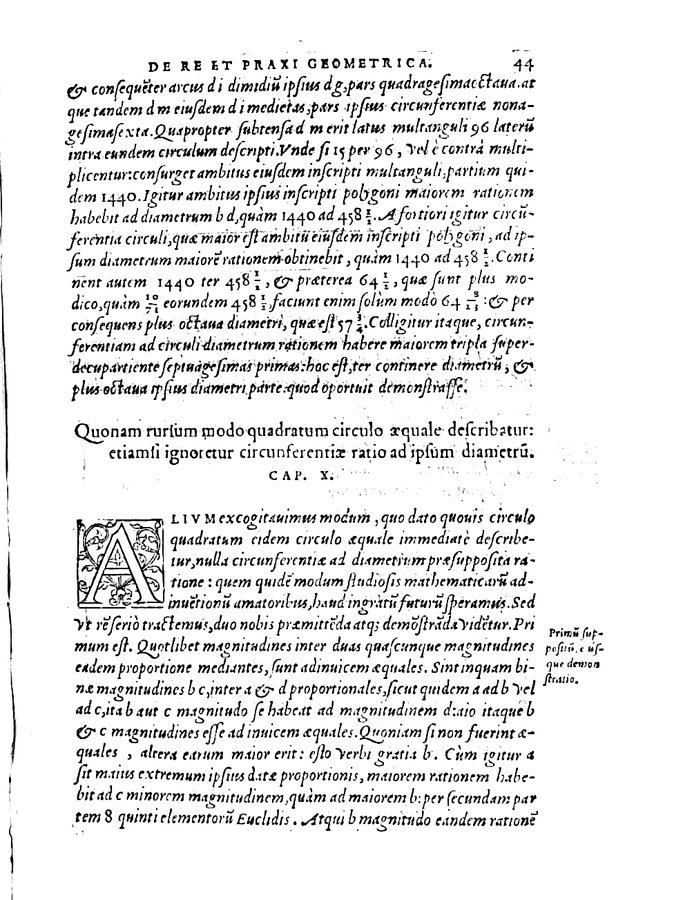 DE RE ET PRAXI GEOMETRICA. 44
& consequẽter arcus d i dimidiũ ipsius d g, pars quadragesimaoctaua. at
que tandem d m eiusdem d i medietas, pars ipsius circunferentiæ nona-
gesimasexta. Quapropter subtensa d m erit latus multanguli 96 laterũ
intra eundem circulum descripti. Vnde si 15 per 96, vel è contrà multi-
plicentur: consurget ambitus eiusdem inscripti multanguli, partium qui-
dem 1440. Igitur ambitus ipsius inscripti polygoni maiorem rationem
habebit ad diametrum b d, quàm 1440 ad 458 ½. A fortiori igitur circũ-
ferentia circuli, quæ maior est ambitu eiusdem inscripti polygoni, ad ip-
sum diametrum maiorẽ rationem obtinebit, quàm 1440 ad 458 ½. Conti
nent autem 1440 ter 458 ½, & præterea 64 ½, quæ sunt plus mo-
dico, quàm 10/71 eorundem 458 ½, faciunt enim solùm modò 64 : & per
consequens plus octaua diametri, quæ est 57 Colligitur itaque, circun-
ferentiam ad circuli diametrum rationem habere maiorem tripla super-
decupartiente septuagesimas primas: hoc est, ter continere diametrũ, &
plus octaua ipsius diametri parte. quod oportuit demonstrasse.
Quonam rursum modo quadratum circulo æquale describatur:
etiamsi ignoretur circunferentiæ ratio ad ipsum diametrũ.
CAP. X.
ALIVM excogitauimus modum, quo dato quouis circulo
quadratum eidem circulo æquale immediatè describe-
tur, nulla circunferentiæ ad diametrum præsupposita ra-
tione: quem quidẽ modum studiosis mathematicarũ ad-
inuẽtionũ amatoribus, haud ingratũ futurũ speramus. Sed
vt rẽ seriò tractemus, duo nobis præmittẽda atq; demõstrãda vidẽtur. Pri
mum est. Quotlibet magnitudines inter duas quascunque magnitudines
eadem proportione mediantes, sunt adinuicem æquales. Sint inquam bi-
næ magnitudines b c, inter a & d proportionales, sicut quidem a ad b vel
ad c, ita b aut c magnitudo se habeat ad magnitudinem d: aio itaque b
& c magnitudines esse ad inuicem æquales. Quoniam si non fuerint æ-
quales, altera earum maior erit: esto verbi gratia b. Cùm igitur a
sit maius extremum ipsius datæ proportionis, maiorem rationem habe-
bit ad c minorem magnitudinem, quàm ad maiorem b: per secundam par
tem 8 quinti elementorũ Euclidis. Atqui b magnitudo eandem rationẽ
Primũ sup-
que demon
stratio.